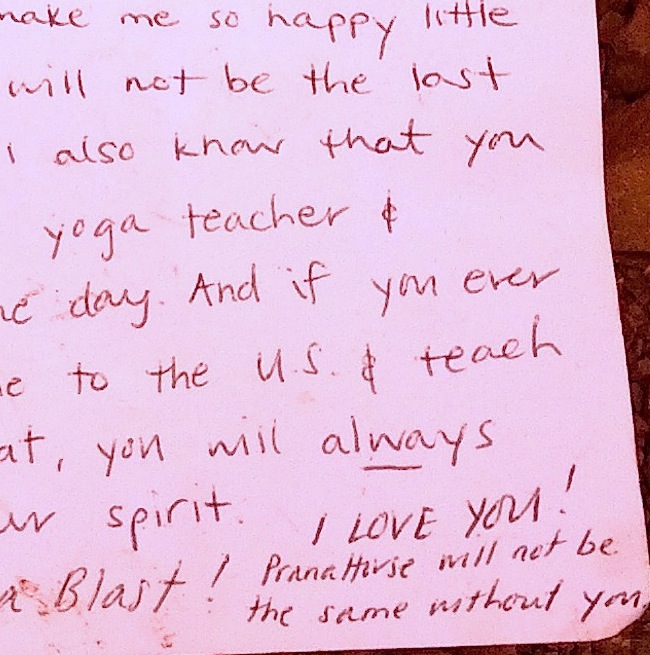 make me so happy little
will not be the last
I also know that you
yoga teacher &
day. And if you ever
to the U.S. & teach
at, you will always
spirit. I LOVE YOU!
a Blast! PranaHorse will not be
the same without you